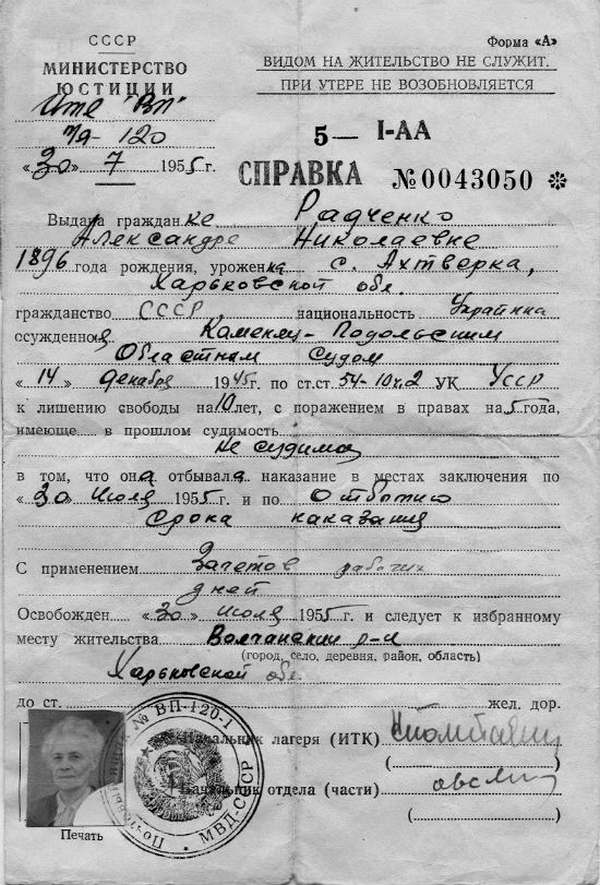 СССР
МИНИСТЕРСТВО
ЮСТИЦИИ
Форма «А»
ВИДОМ НА ЖИТЕЛЬСТВО НЕ СЛУЖИТ.
ПРИ УТЕРЕ НЕ ВОЗОБНОВЛЯЕТСЯ
Итл "ВП"
120
«30» 7 1955 г.
5— I-АА
СПРАВКА №0043050
Выдана гражданке Радченко
Александре Николаевне
1896 года рождения, уроженка с. Ахтверка,
Харьковской обл.
гражданство СССР, национальность Украинка
осужденной Каменец-Подольским
Областным Судом
«14» декабря 1945 г. по ст.ст. 54-10ч.2 УК УССР
к лишению свободы на 10 лет, с поражением в правах на 5 года,
имеюще в прошлом судимость
не судима
в том, что она отбывала наказание в местах заключения по
«30» Июля 1955 г. и по Отбытию
срока наказания
С применением Зачетов рабочих
дней
Освобожден «30» Июля 1955 г. и следует к избранному
месту жительства Волчанский р-н
(город, село, деревня, район, область)
Харьковской обл.
до ст. жел. дор.
Начальник лагеря (ИТК)
Начальник отдела (части)
Печать
№ ВП-120-1
МВД-СССР